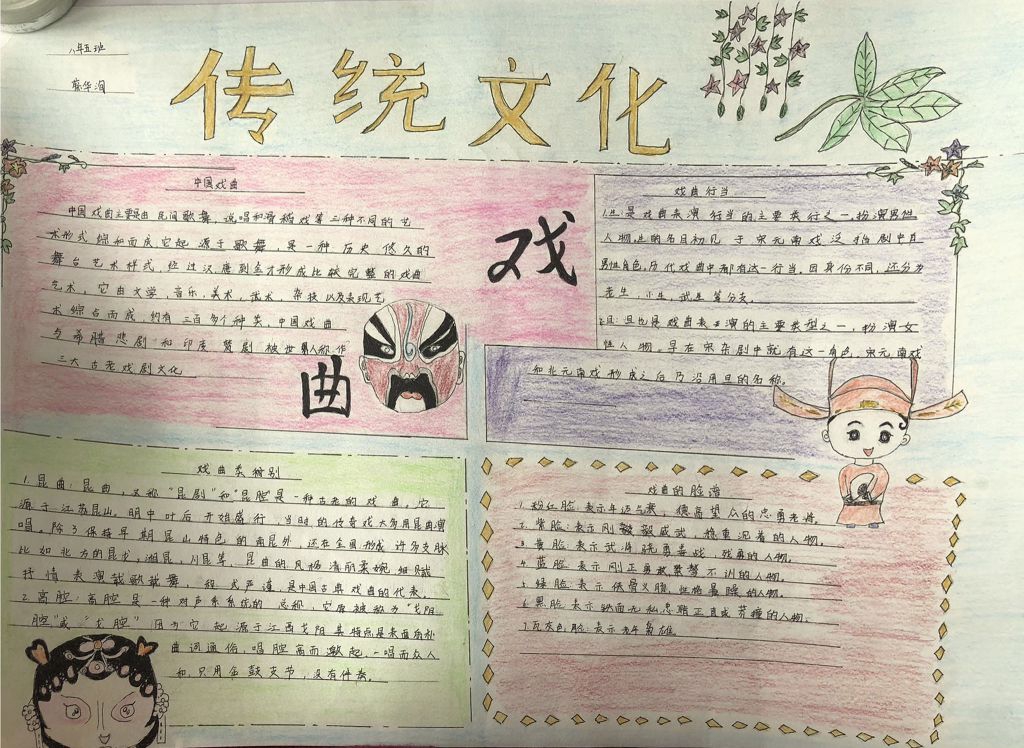 八年五班
蔡华洵
传统文化
中国戏曲
中国戏曲主要是由民间歌舞、说唱和滑稽戏等三种不同的艺
术形式综和而成它起源于歌舞,是一种历史悠久的
舞台艺术样式,经过汉唐到金才形成比较完整的戏曲
艺术,它由文学,音乐,美术,武术,杂技以及表现艺
术综合而成,约有三百多个种类,中国戏曲
与希腊悲剧和印度梵剧被世界人称作
三大古老戏剧文化
戏
曲
戏曲行当
1.生:是戏曲表演行当的主要类行之一,扮演男性
人物,生的名目初见于宋元南戏泛指剧中直
男性角色,历代戏曲中都有这一行当,因身份不同,还分为
老生,小生,武生等分支。
2.旦:旦也是戏曲表演的主要类型之一,扮演女
性人物,早在宋杂剧中就有这一角色,宋元南戏
和北元南戏形成之后乃沿用旦的名称。
戏曲类特别
1.昆曲:昆曲,又称“昆剧”和“昆腔”是一种古老的戏曲。它
源于江苏昆山。明中叶后开始盛行,当时的传奇戏大多用昆曲演
唱,除了保持早期昆山特色的南昆外,还在全国形成许多支脉
比如北方的昆弋,湘昆,川昆等,昆曲的风格清丽柔婉、细腻
抒情表演载歌载舞,程式严谨是中国古典戏曲的代表。
2.高腔:高腔是一种对声系系统的总称,它原被称为“弋阳
腔”或“弋腔”因为它起源于江西弋阳其特点是表直质朴
曲词通俗,唱腔高而激起,一唱而众人
和,只用金鼓支节,没有伴奏。
戏曲的脸谱
1.粉红脸:表示年迈气衰,德高望众的忠勇老将。
2.紫脸:表示刚毅威武,稳重沉着的人物。
3.黄脸:表示武将骁勇善战,残暴的人物。
4.蓝脸:表示刚正勇武桀骜不训的人物。
5.绿脸:表示侠骨义胆,性格暴躁的人物。
6.黑脸:表示铁面无私忠聪正直或莽撞的人物。
7.瓦灰色脸:表示老年枭雄。